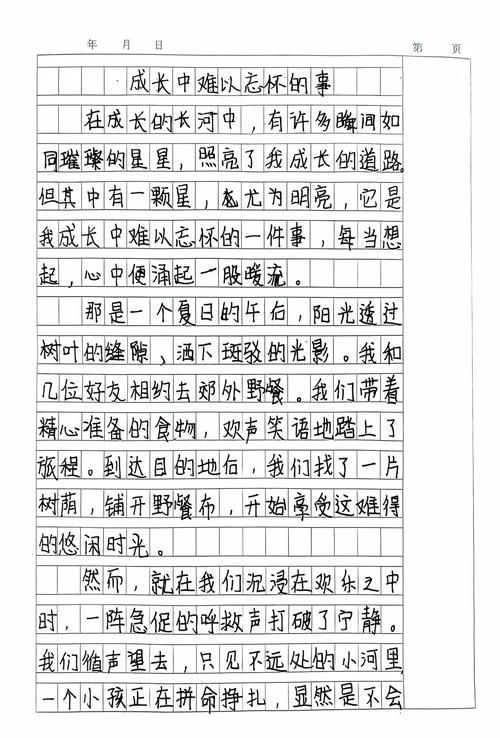 年 月 日 第 页
成长中难以忘怀的事
在成长的长河中，有许多瞬间如
同璀璨的星星，照亮了我成长的道路。
但其中有一颗星，尤为明亮，它是
我成长中难以忘怀的一件事，每当想
起，心中便涌起一股暖流。
那是一个夏日的午后，阳光透过
树叶的缝隙，洒下斑驳的光影。我和
几位好友相约去郊外野餐。我们带着
精心准备的食物，欢声笑语地踏上了
旅程。到达目的地后，我们找了一片
树荫，铺开野餐布，开始享受这难得
的悠闲时光。
然而，就在我们沉浸在欢乐之中
时，一阵急促的呼救声打破了宁静。
我们循声望去，只见不远处的小河里，
一个小孩正在拼命挣扎，显然是不会